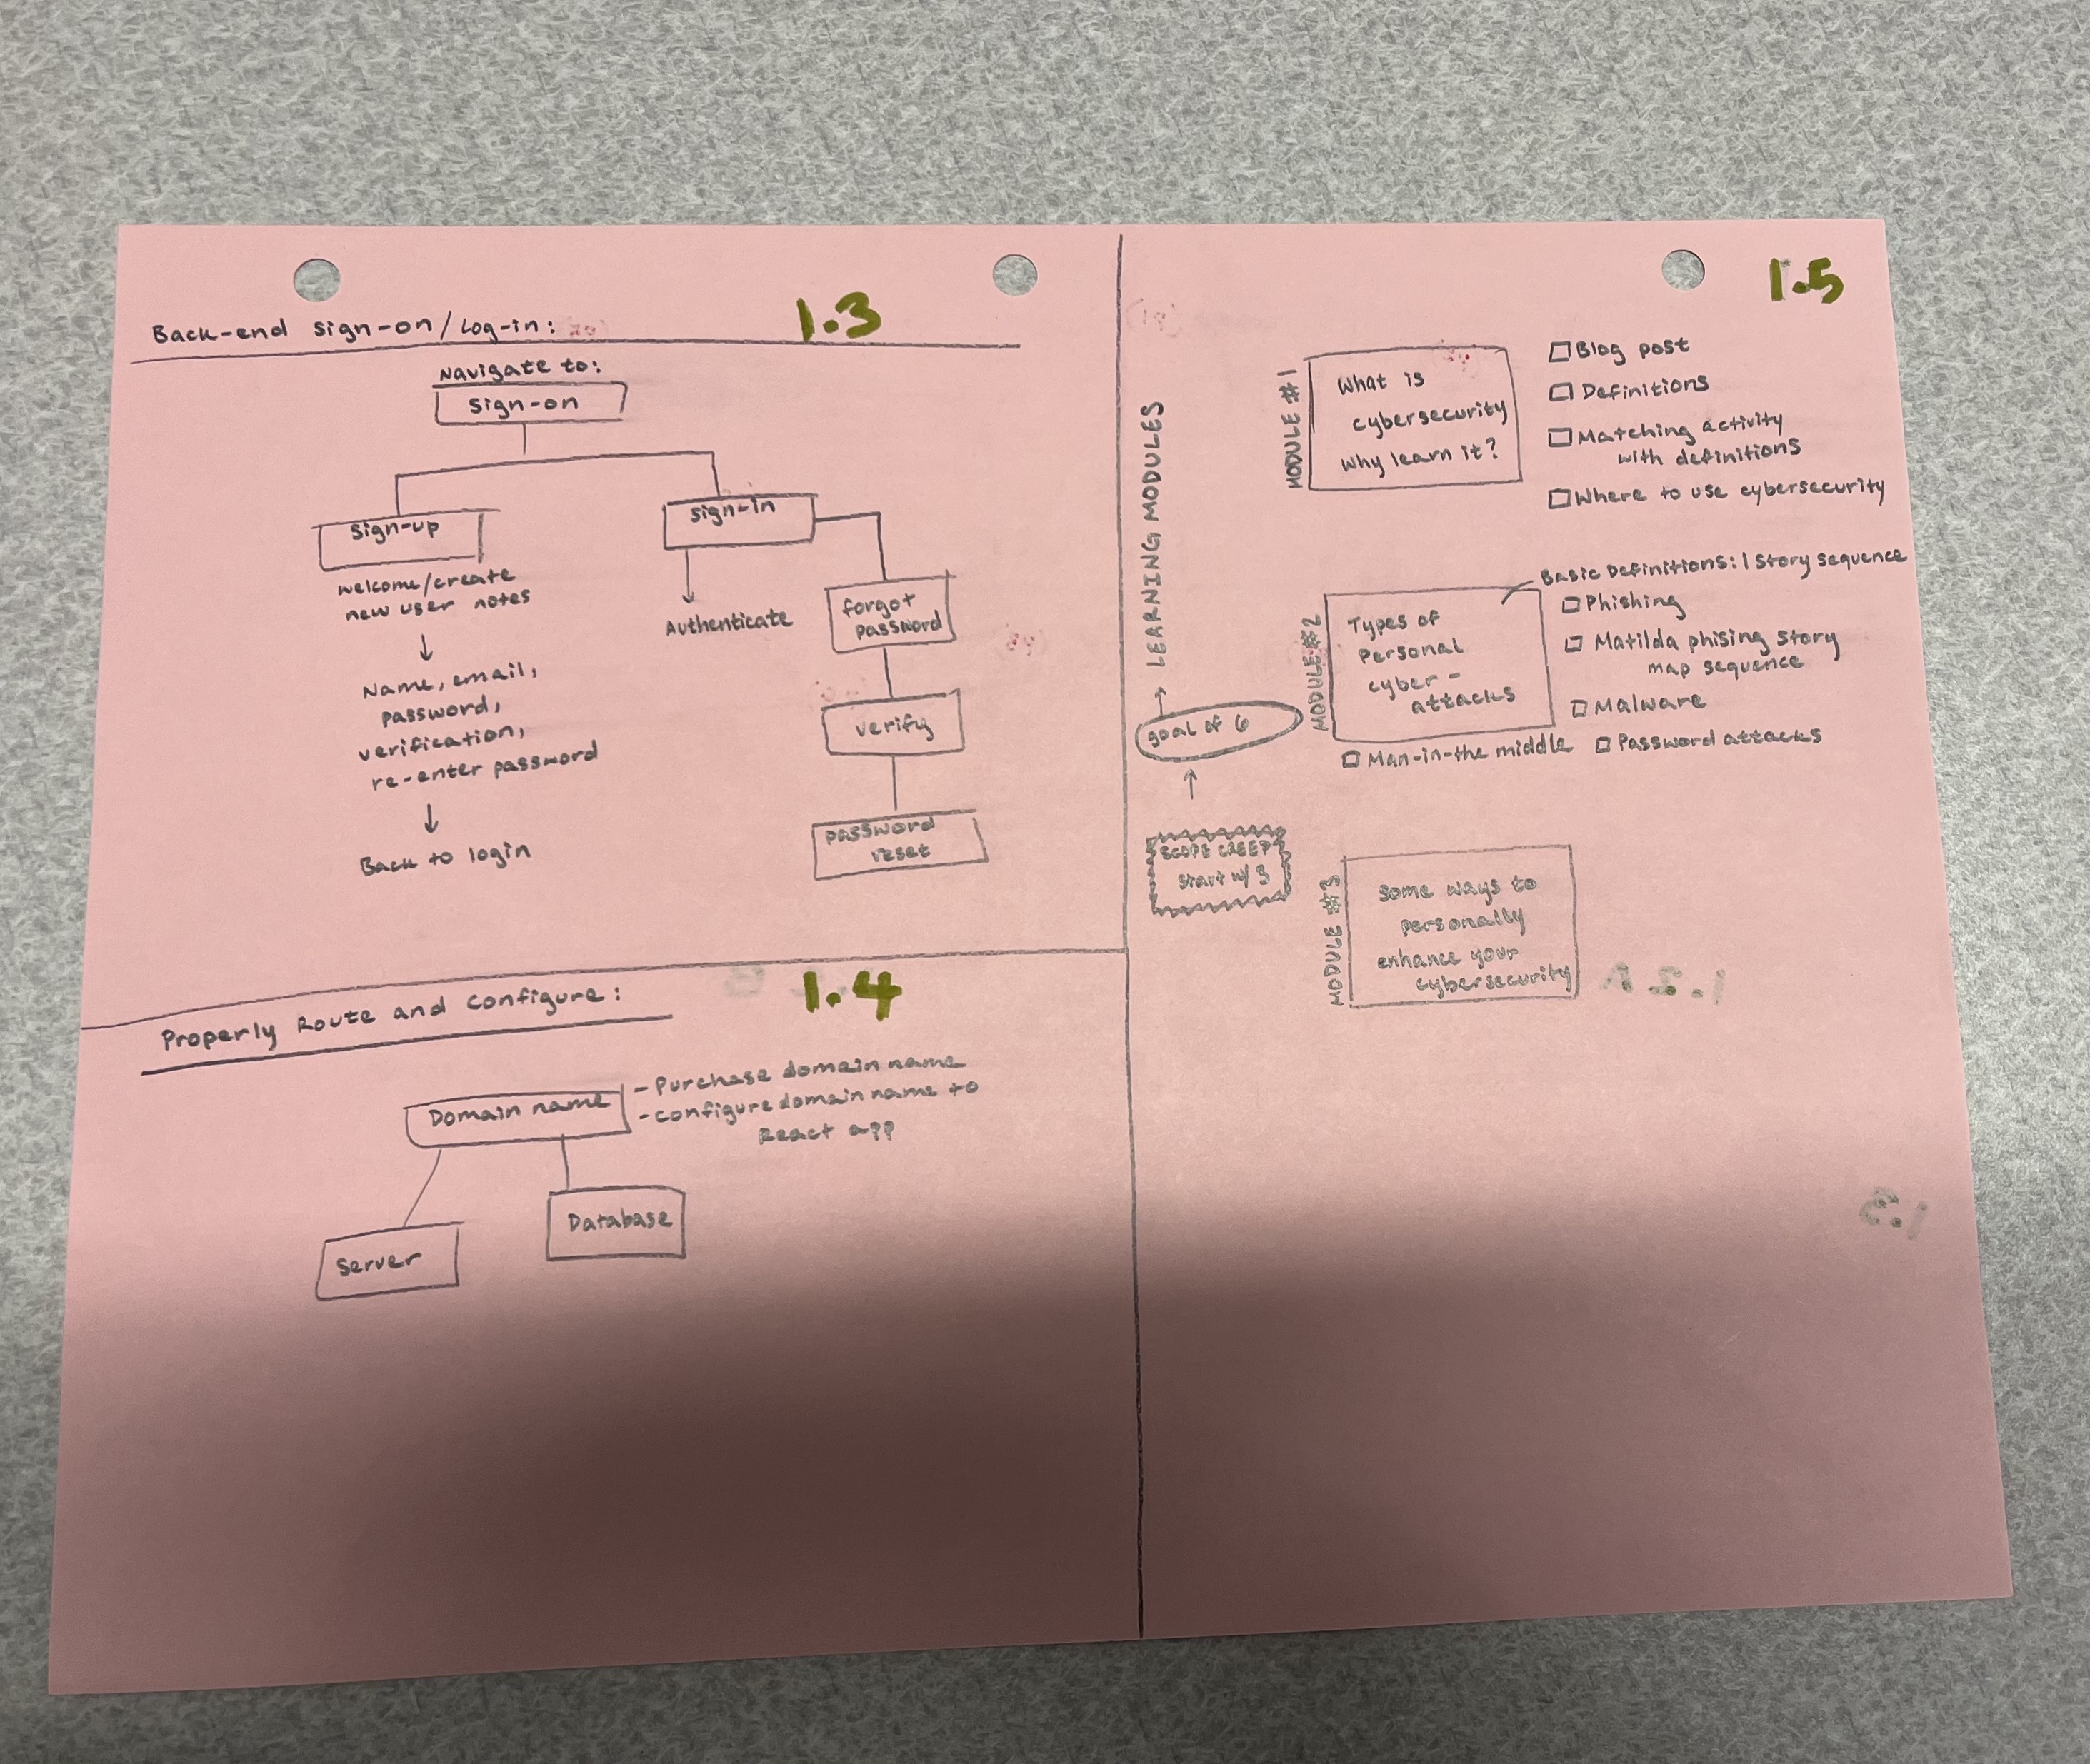 Back-end sign-on/Log-in:
1.3
Navigate to:
sign-on
sign-up
welcome/create
new user notes
↓
Name, email,
password,
verification,
re-enter password
↓
Back to login
sign-in
Authenticate
forgot
password
verify
password
reset
Properly Route and configure:
1.4
Domain name
- Purchase domain name
- configure domain name to
React app
Server
Database
1.5
LEARNING MODULES
↑
goal of 6
↑
SCOPE CREEP
start w/ 3
MODULE #1
What is
cybersecurity
why learn it?
□ Blog post
□ Definitions
□ Matching activity
with definitions
□ Where to use cybersecurity
MODULE #2
Types of
Personal
cyber-
attacks
Basic Definitions: 1 Story sequence
□ Phishing
□ Matilda phising story
map sequence
□ Malware
□ Man-in-the middle □ Password attacks
MODULE #3
some ways to
personally
enhance your
cybersecurity